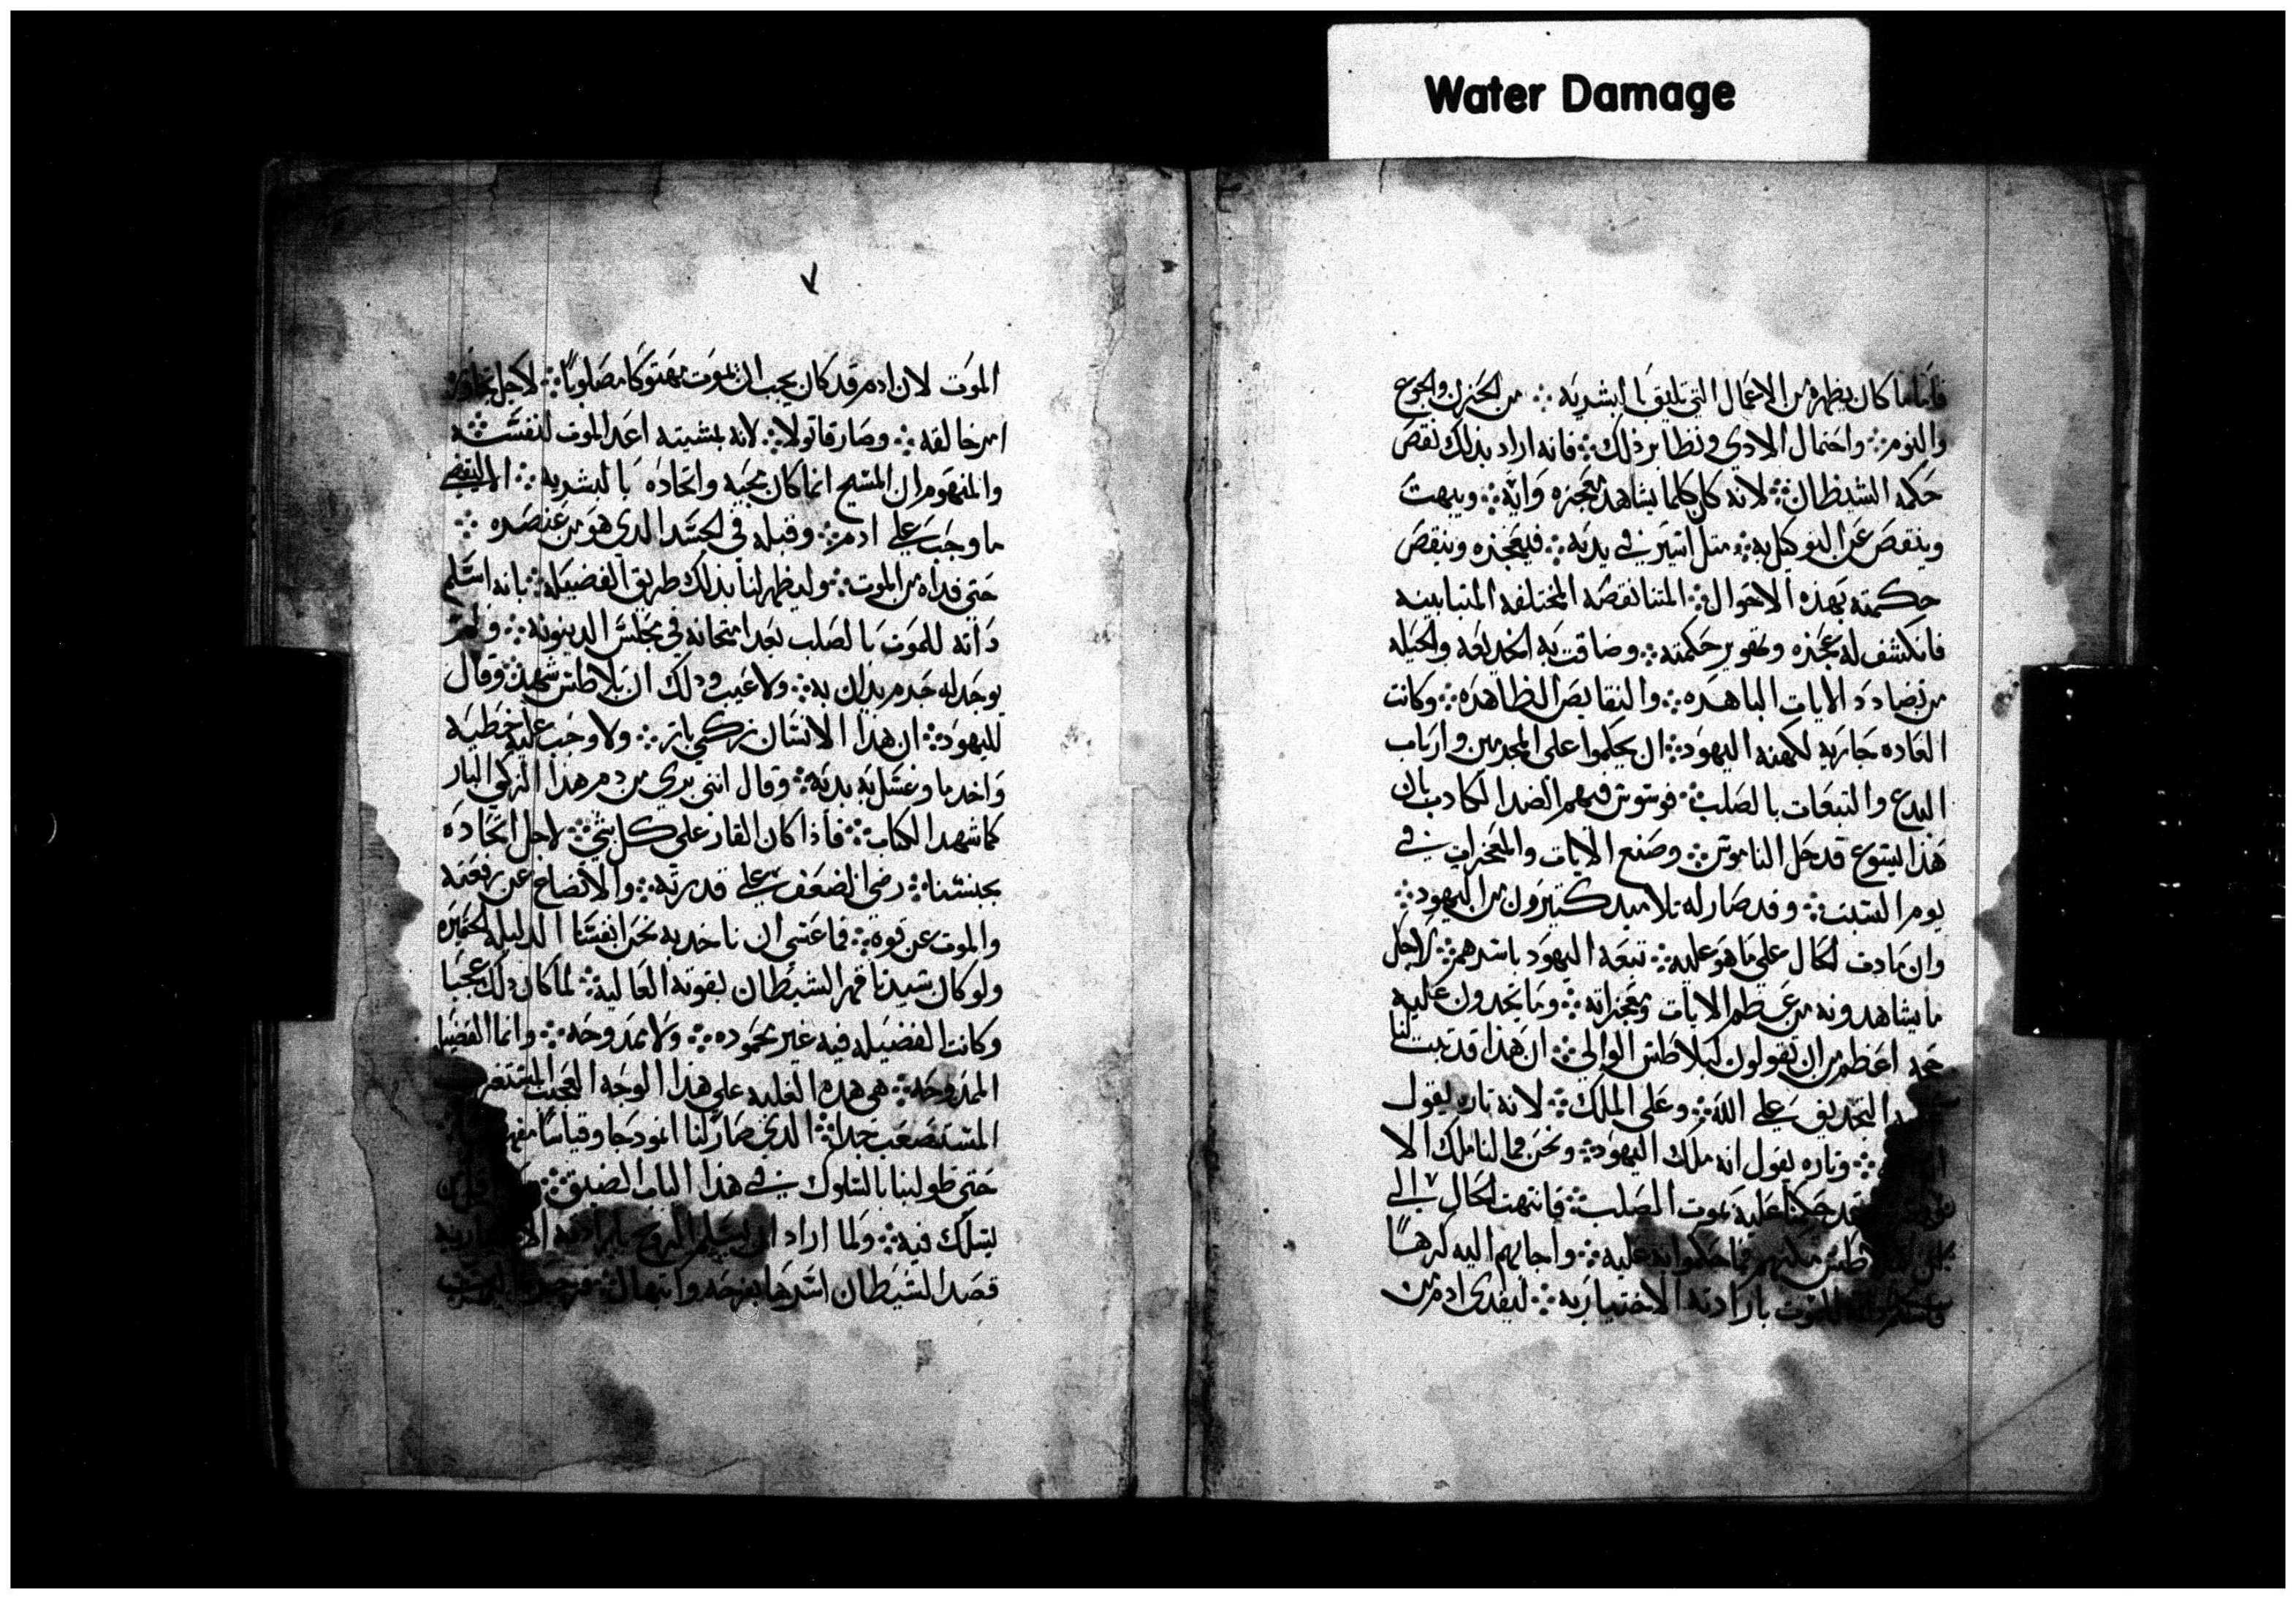 Water Damage
فاما ما كان يظهره من الاعمال التي تليق بالبشريه ܀ من الحزن والجوع
والنوم ܀ واحتمال الادي ونظاير ذلك ܀ فانه اراد بذلك نقض
حكمه الشيطان ܀ لانه كان كلما يشاهد معجزه وايه ܀ ويبهت
وينقص عن التوكيل به ܀ متل اتنين في يديه ܀ فيعجزه وينقض
حكمته بهذه الاحوال ܀ المتناقضه المختلفه المتباينه
فانكشف له عجزه وتقوير حكمته ܀ وضاقت به الخديعه والحيله
من تضادد الايات الباهره ܀ والنقايص الظاهره ܀ وكانت
العاده جاريه لكهنه اليهود ܀ ان يحكموا على المجرمين وارباب
البدع والتبعات بالصلب ܀ فوسوس فيهم الضد الكادب بان
هذا ليسوع قد حل الناموس ܀ وصنع الايات والمعجزات في
يوم السبت ܀ وقد صار له تلاميد كتيرون من اليهود ܀
وان تمادت الحال على ما هو عليه ܀ تبعه اليهود باسرهم ܀ لاجل
ما يشاهدونه من عظم الايات ومعجزاته ܀ وما تجدون عليه
حجه اعظم من ان تقولون لبيلاطس الوالي ܀ ان هذا قد تبت لنا
التجديف على الله ܀ وعلى الملك ܀ لانه تاره يقول
܀ وتاره يقول انه ملك اليهود ܀ ونحن فما لنا ملك الا
فقد حكمنا عليه بموت الصلب ܀ فانتهت الحال الى
مكنهم مما حكموا به عليه ܀ واجابهم اليه كرهًا
للموت بارادته الاختياريه ܀ ليفدي ادم من
٧
الموت لان ادم قد كان يجب ان يموت مهتوكا مصلوبًا ܀ لاجل تجاوزه
امر خالقه ܀ وصار قاتولا ܀ لانه بمشيته اعد الموت لنفسه ܀
والمفهوم ان المسيح انما كان مجيه واتحاده بالبشريه ܀ الا ليقضي
ما وجب على ادم ܀ وقبله في الجسد الدي هو من عنصره ܀
حتى فداه من الموت ܀ وليظهر لنا بذلك طريق الفضيله ܀ بانه اسلم
داته للموت بالصلب بعد امتحانه في مجلس الدينونه ܀ ولم
يوجد له جرم يدان به ܀ ولا عيب ودلك ان بلاطس شهد ܀ وقال
لليهود ܀ ان هذا الانسان زكي بار ܀ ولا وجب عليه خطيه
واخد ما وغسل به يديه ܀ وقال انني بري من دم هذا الزكي البار
كما شهد الكتاب ܀ فاذا كان القادر على كل شي ܀ لاجل اتحاده
بجنسنا ܀ رضي الضعف على قدرته ܀ والاتضاع عن رفعته
والموت عن قوه ܀ فما عسى ان ناخد به نحن انفسنا الدليله الحقيره
ولو كان سيدنا قهر الشيطان بقوته العاليه ܀ لما كان دلك عجبا
وكانت الفضيله فيه غير محموده ܀ ولا ممدوحه ܀ وانما الفضيله
الممدوحه ܀ هي هده الغلبه على هذا الوجه العجيب المستغرب
المستصعب جدا ܀ الدي صار لنا انمودجا وقياسا
حتى طولبنا بالسلوك في هذا الباب الضيق ܀
يسلك فيه ܀ ولما اراد ان يسلم الروح بارادته
قصد الشيطان اسرها بفرحه وابتهال ܀